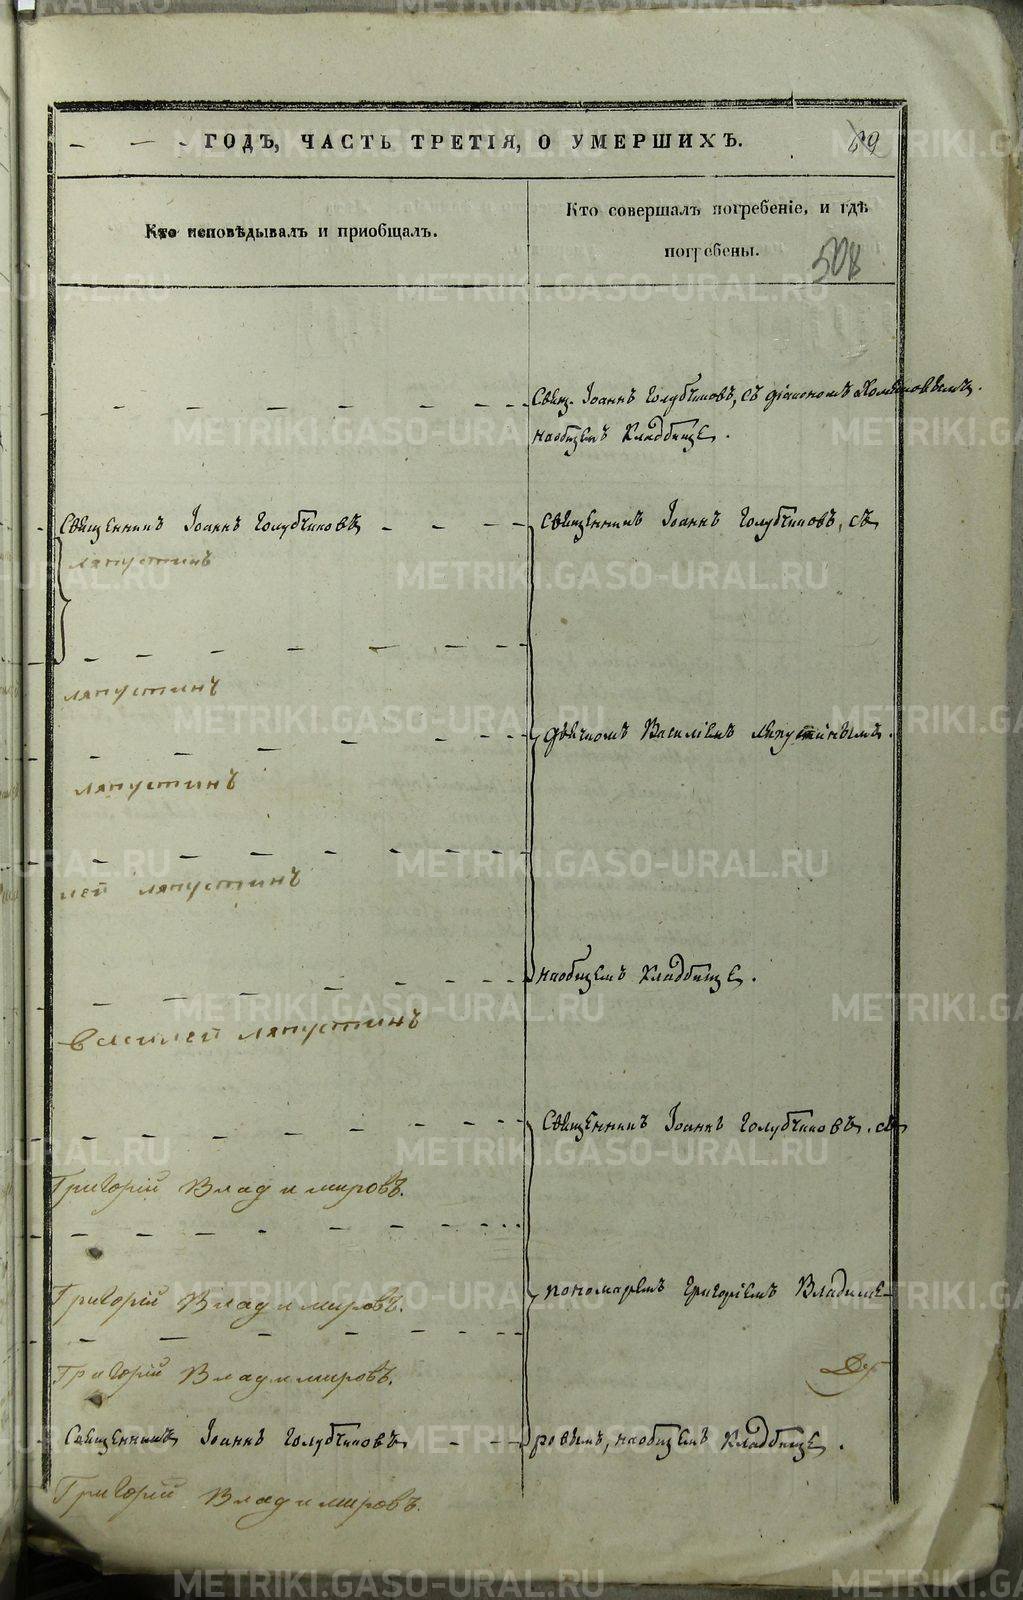 ГОДЪ, ЧАСТЬ ТРЕТІЯ, О УМЕРШИХЪ.
69
Кто исповѣдывалъ и пріобщалъ.
Кто совершалъ погребеніе, и гдѣ
погребены.
508
Свящ. Іоаннъ Голубчиковъ, съ діакономъ
наобщемъ Кладбище.
Священникъ Іоаннъ Голубчиковъ
Священникъ Іоаннъ Голубчиковъ, съ
ляпустинъ
ляпустинъ
дьячкомъ Василіемъ Ляпустинымъ.
ляпустинъ
лей ляпустинъ
наобщемъ Кладбище.
василей ляпустинъ
Священникъ Іоаннъ Голубчиковъ, съ
Григорій Владимировъ.
Григорій Владимировъ.
пономаремъ Григоріемъ Владиме-
Григорій Владимировъ.
Священникъ Іоаннъ Голубчиковъ
ровымъ, наобщемъ Кладбище.
Григорій Владимировъ.
METRIKI.GASO-URAL.RU